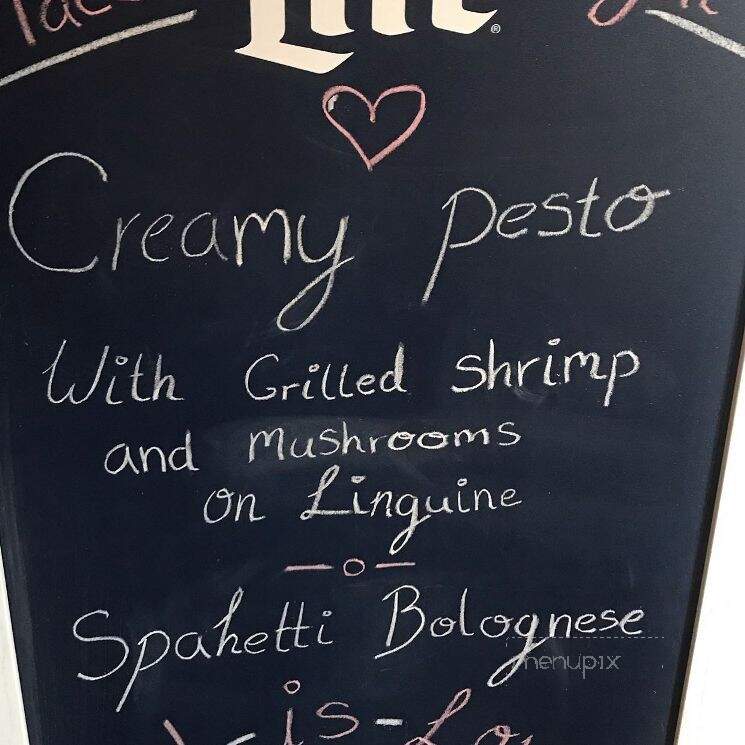 Lite
Creamy pesto
With Grilled shrimp
and mushrooms
on Linguine
Spahetti Bolognese
menupix
is-